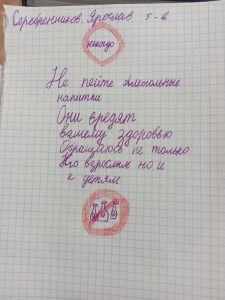 Серебренников. Ярослав 5-в
некогдо
Не пейте Алкогольные
напитки
Они вредят
вашему здоровью
Обращаюсь не только
к взрослым но и
к детям.